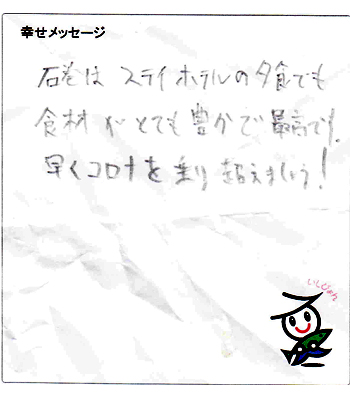 幸せメッセージ
石巻は ステイホテルの夕食でも
食材がとても豊かで最高です。
早くコロナを乗り超えましょう!
いしぴょん